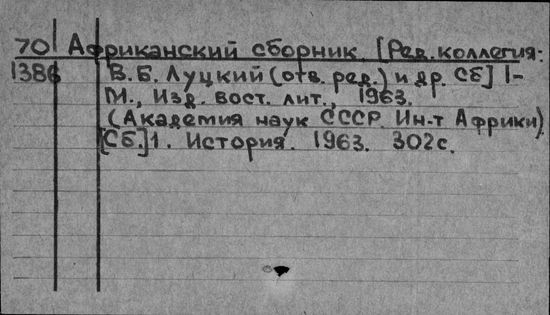 70 Африканский сборник. [Ред. коллегия:
1386 В. Б. Луцкий (отв. ред.) и др. Сб] 1-
М., Изд. вост. лит., 1963.
(Академия наук СССР. Ин-т Африки)
[Сб.] 1. История. 1963. 302 с.